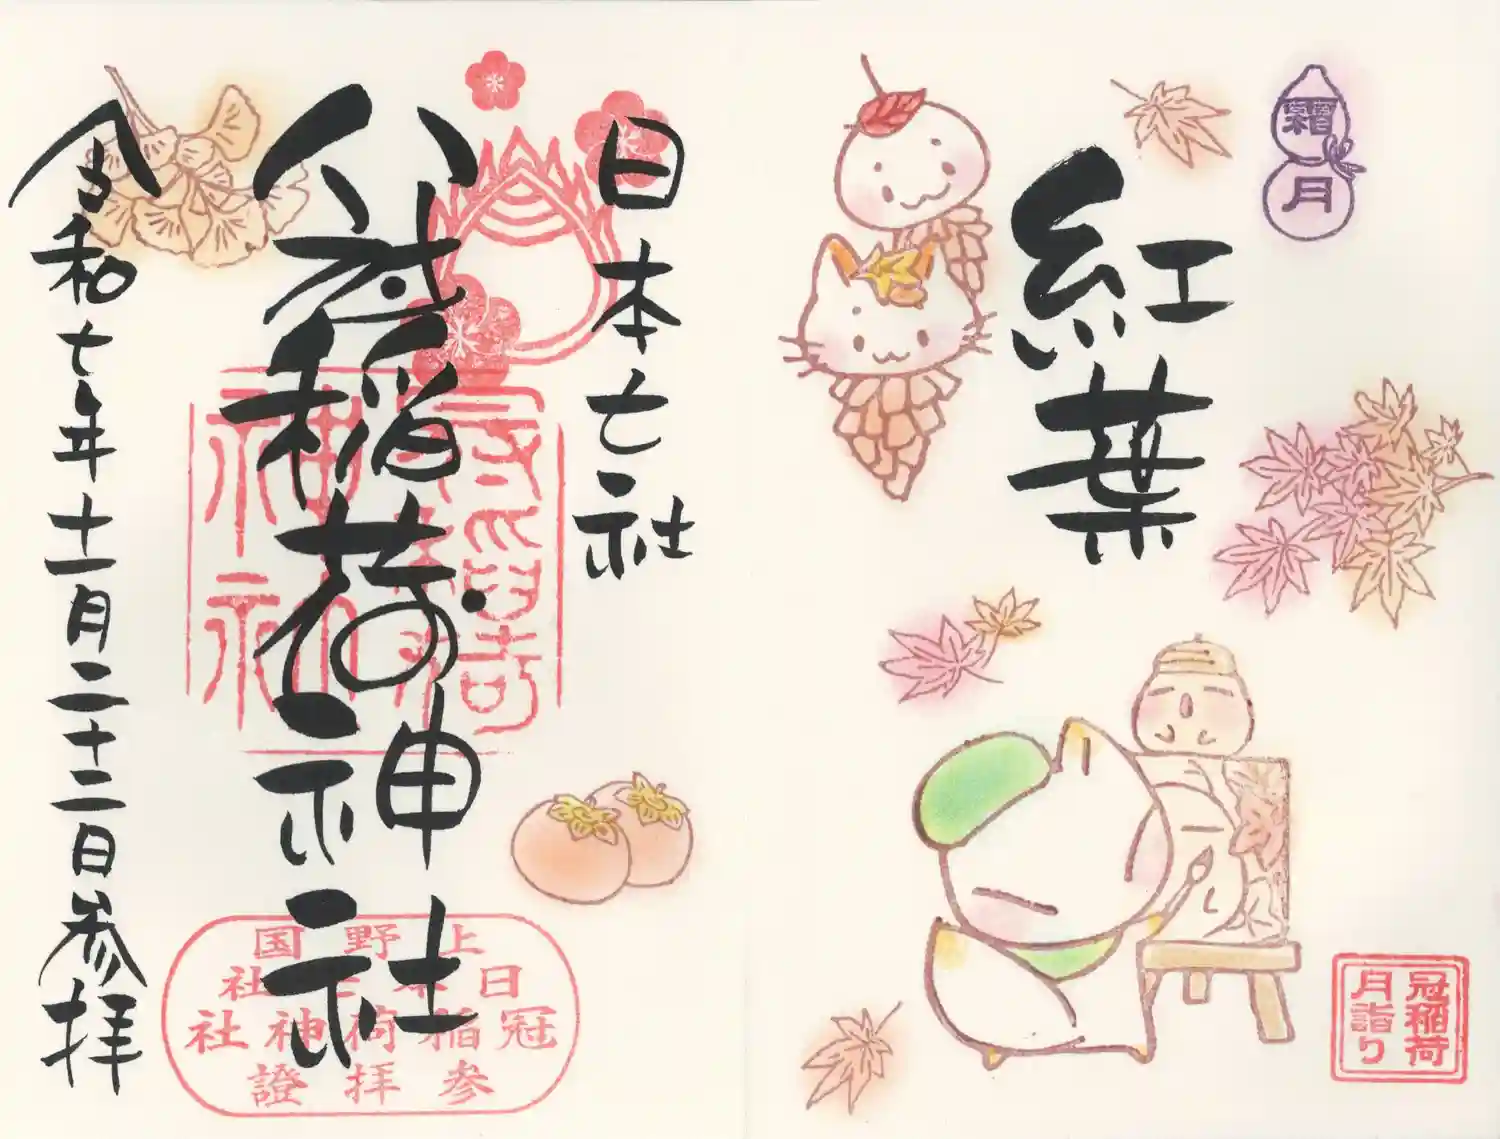 霜月
紅葉
冠稲荷
月詣り
日本七社
冠稲荷神社
令和七年十一月二十二日参拝
冠稲荷
神社
上野国
日本七社
冠稲荷神社
参拝證